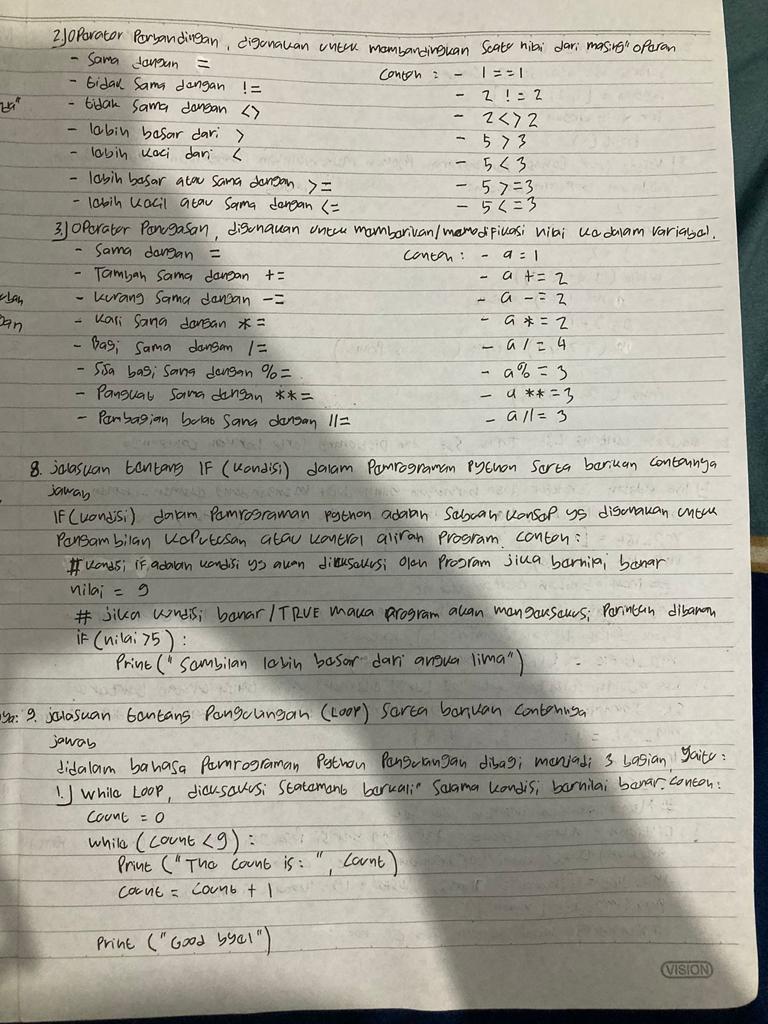 2.) Operator Perbandingan, digunakan untuk membandingkan suatu nilai dari masing" operan
- Sama dengan =
Contoh : - 1 == 1
- tidak sama dengan !=
- 2 != 2
- tidak sama dengan <>
- 2 <> 2
- lebih besar dari >
- 5 > 3
- lebih keci dari <
- 5 < 3
- lebih besar atau sama dengan >=
- 5 >= 3
- lebih kecil atau sama dengan <=
- 5 <= 3
3.) Operator Penugasan, digunakan untuk memberikan/memodifikasi nilai kedalam variabel.
- Sama dengan =
Contoh : - a = 1
- Tambah sama dengan +=
- a += 2
- kurang sama dengan -=
- a -= 2
- kali sama dengan *=
- a *= 2
- Bagi sama dengan /=
- a /= 4
- Sisa bagi sama dengan %=
- a %= 3
- Pangkat sama dengan **=
- a **= 3
- Pembagian bulat sama dengan //=
- a //= 3
8. jelaskan tentang IF (kondisi) dalam Pemrograman Python serta berikan contohnya
jawab
IF (kondisi) dalam Pemrograman python adalah sebuah konsep yg digunakan untuk
Pengambilan keputusan atau kontrol aliran program. contoh :
# kondisi if adalah kondisi yg akan dieksekusi oleh Program jika bernilai benar
nilai = 9
# jika kondisi benar/TRUE maka program akan mengeksekusi perintah dibawah
if (nilai >5) :
Print (" Sembilan lebih besar dari angka lima")
9. jelaskan tentang Pengulangan (Loop) serta berikan contohnya
jawab
didalam bahasa Pemrograman Python Pengulangan dibagi menjadi 3 bagian, yaitu :
1.) While Loop, dieksekusi statement berkali" selama kondisi bernilai benar. contoh :
Count = 0
while (count < 9) :
Print ("The count is : ", count)
count = count + 1
Print ("Good bye!")
VISION